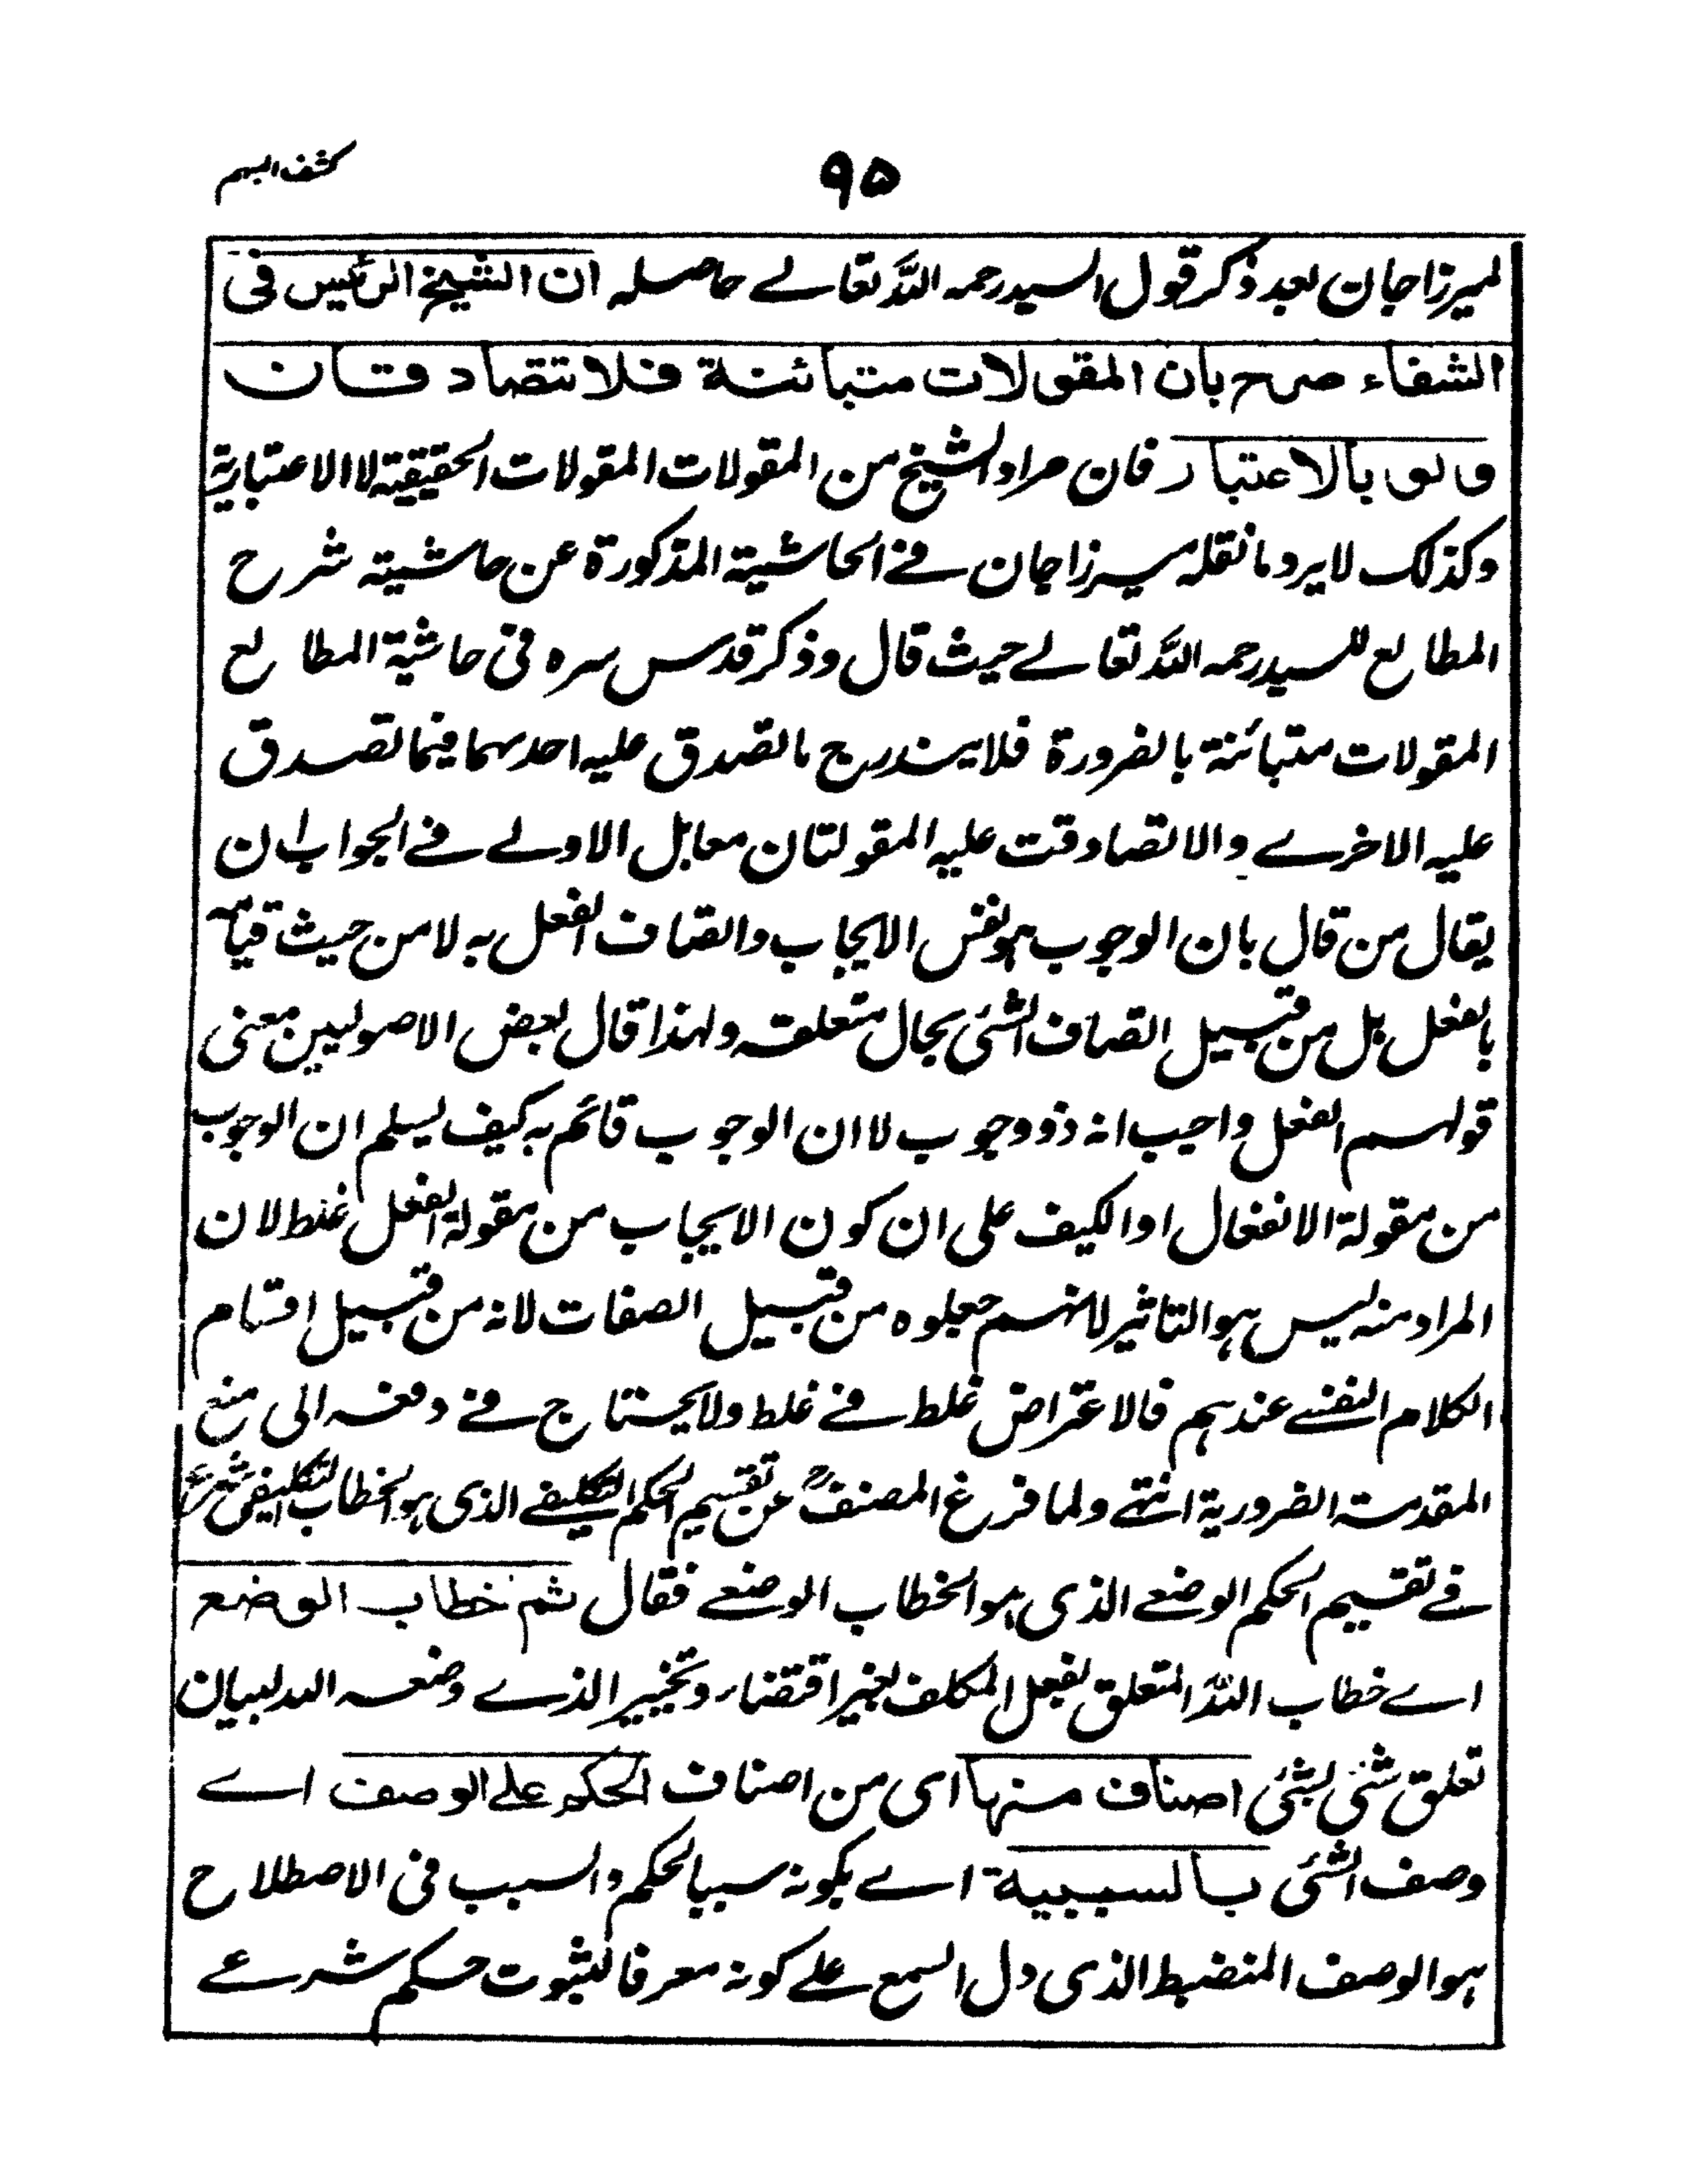 كشف المبهم
٩٥
لميرزاجان بعد ذكر قول السيد رحمه الله تعالے حاصله ان الشيخ الرئيس فى
الشفاء صرح بان المقولات متبائنة فلا تتصادقان
ولو بالاعتبار فان مراد الشيخ من المقولات المقولات الحقيقية لا الاعتبارية
وكذلك لا يرد ما نقله ميرزاجان فے الحاشية المذكورة عن حاشية شرح
المطالع للسيد رحمه الله تعالے حيث قال وذكر قدس سره فى حاشية المطالع
المقولات متبائنة بالضرورة فلا يندرج ما تصدق عليه احدهما فيما تصدق
عليه الاخرے والا تصادقت عليه المقولتان معا بل الاولے فے الجواب ان
يقال من قال بان الوجوب هو نفس الايجاب واتصاف الفعل به لا من حيث قيامه
بالفعل بل من قبيل اتصاف الشئ بحال متعلقه ولهذا قال بعض الاصوليين معنى
قولهم الفعل واجب انه ذو وجوب لا ان الوجوب قائم به كيف يسلم ان الوجوب
من مقولة الانفعال او الكيف على ان كون الايجاب من مقولة الفعل غلط لان
المراد منه ليس هو التاثير لانهم جعلوه من قبيل الصفات لانه من قبيل اقسام
الكلام النفسے عندهم فالاعتراض غلط فے غلط ولا يحتاج فے دفعه الى منع
المقدمة الضرورية انتهے ولما فرغ المصنف عن تقسيم الحكم التكليفے الذى هو الخطاب التكليفى شرع
فے تقسيم الحكم الوضعے الذى هو الخطاب الوضعے فقال ثم خطاب الوضع
اے خطاب الله المتعلق بفعل المكلف بغير اقتضاء وتخيير الذے وضعه الله لبيان
تعلق شئ بشئ اصناف منها اى من اصناف الحكم على الوصف اے
وصف الشئ بالسببية اے بكونه سببا لحكم والسبب فى الاصطلاح
هو الوصف المنضبط الذى دل السمع علے كونه معرفا لثبوت حكم شرعے